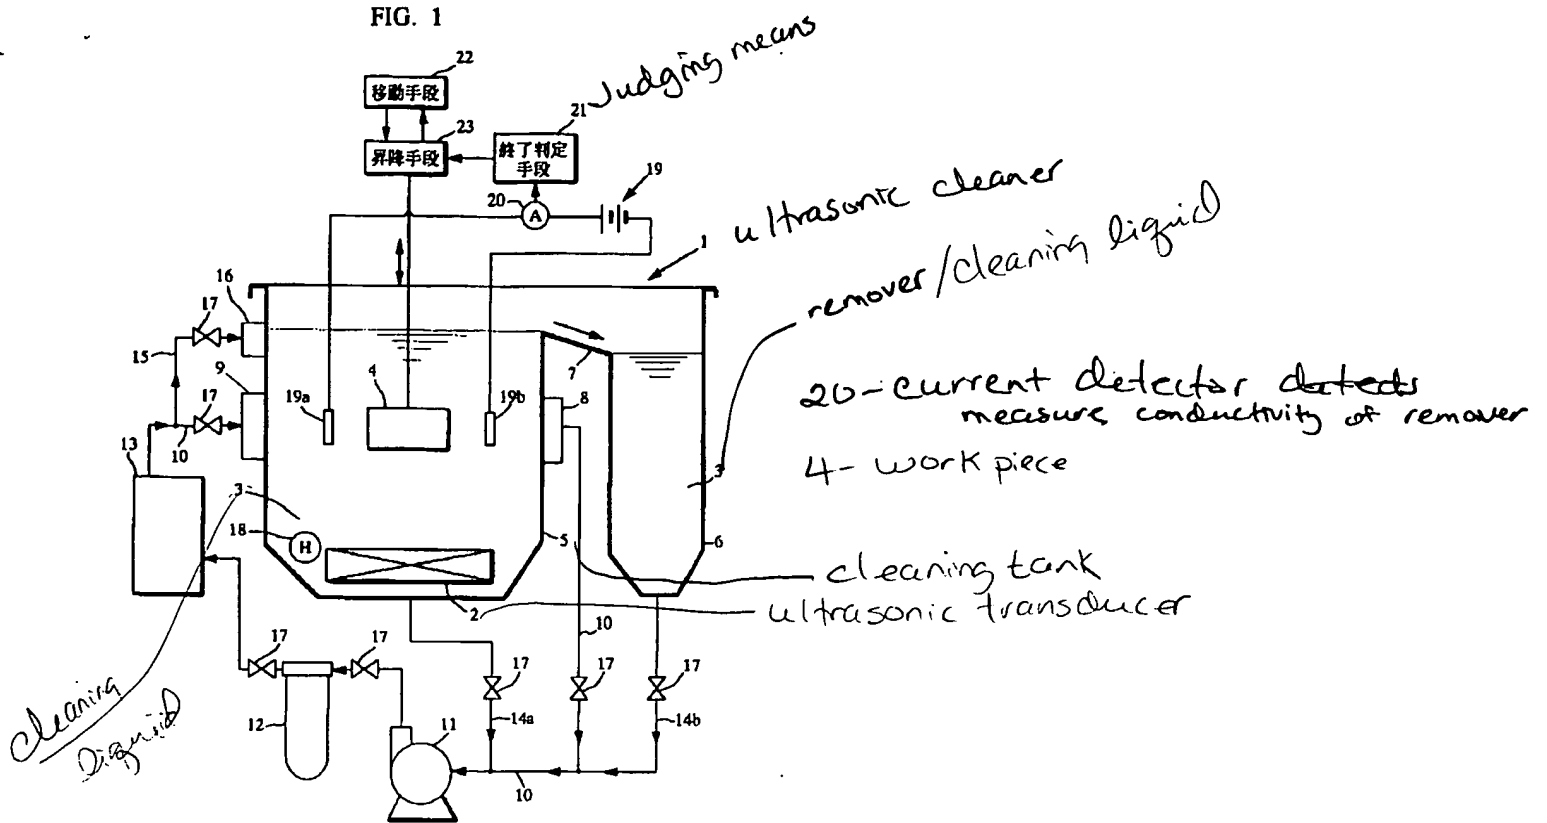 FIG. 1
22
移動手段
23
昇降手段
21
Judging means
終了判定
手段
20
A
19
1
ultrasonic cleaner
remover/cleaning liquid
16
17
15
9
17
10
13
4
19a
19b
7
8
20 - current detector detects
measure conductivity of remover
4 - work piece
3
3
18
H
5
6
2
cleaning tank
ultrasonic transducer
10
17
17
17
17
17
cleaning
liquid
12
11
14a
14b
10